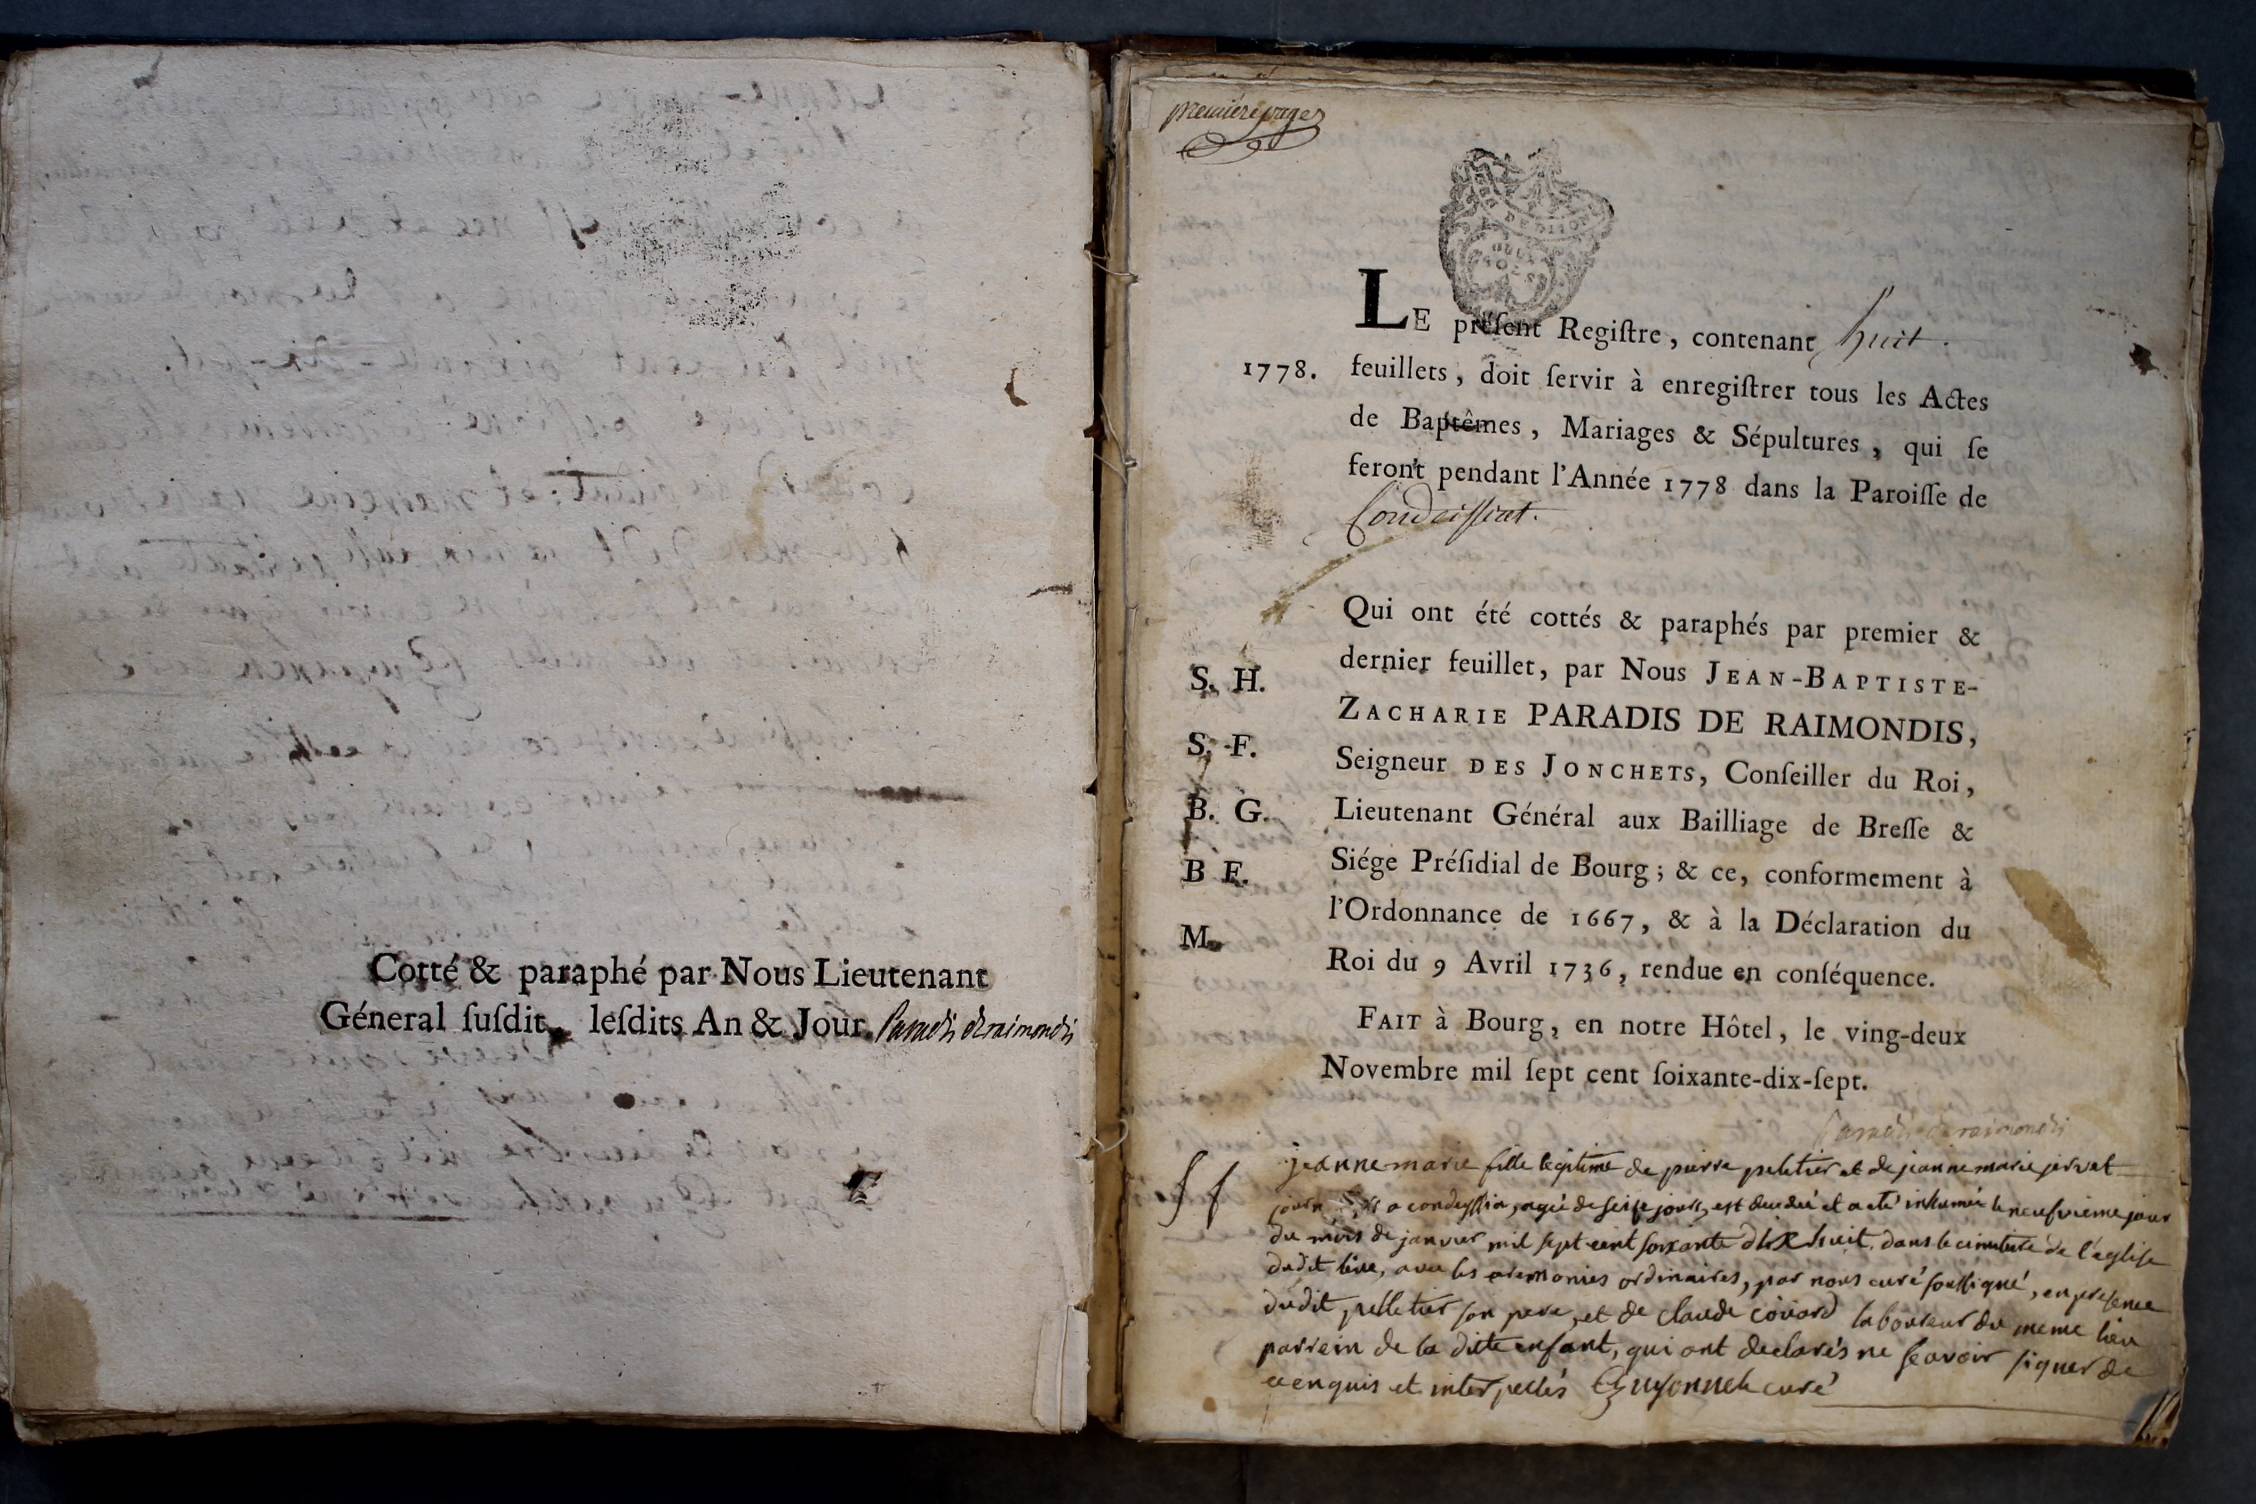 Cotté & paraphé par Nous Lieutenant
Géneral ſuſdit, leſdits An & Jour. Paradis deraimondis
premiere page
LE préſent Regiſtre, contenant huit.
1778.
feuillets, doit ſervir à enregiſtrer tous les Actes
de Baptêmes, Mariages & Sépultures, qui ſe
feront pendant l'Année 1778 dans la Paroiſſe de
Condeissiat.
Qui ont été cottés & paraphés par premier &
dernier feuillet, par Nous JEAN-BAPTISTE-
ZACHARIE PARADIS DE RAIMONDIS,
Seigneur DES JONCHETS, Conſeiller du Roi,
Lieutenant Général aux Bailliage de Breſſe &
Siége Préſidial de Bourg; & ce, conformement à
l'Ordonnance de 1667, & à la Déclaration du
Roi du 9 Avril 1736, rendue en conſéquence.
S. H.
S. F.
B. G.
B F.
M.
FAIT à Bourg, en notre Hôtel, le ving-deux
Novembre mil ſept cent ſoixante-dix-ſept.
Paradis deraimondis
S f
jeanne marie fille legitime de pierre peletier et de jeanne marie jervet
a condeyssia, agée de seise jours, est decedée et a eté inhumée le neufvieme jour
du mois de janvier mil sept cent soixante dix huit, dans le cimetiere de l'eglise
dudit lieu, avec les ceremonies ordinaires, par nous curé soussigné, en presence
dudit pelletier son pere, et de claude coüard laboureur du meme lieu
parrein de la ditte enfant, qui ont declarés ne sçavoir signer de
ce enquis et interpellés Guyonnet curé